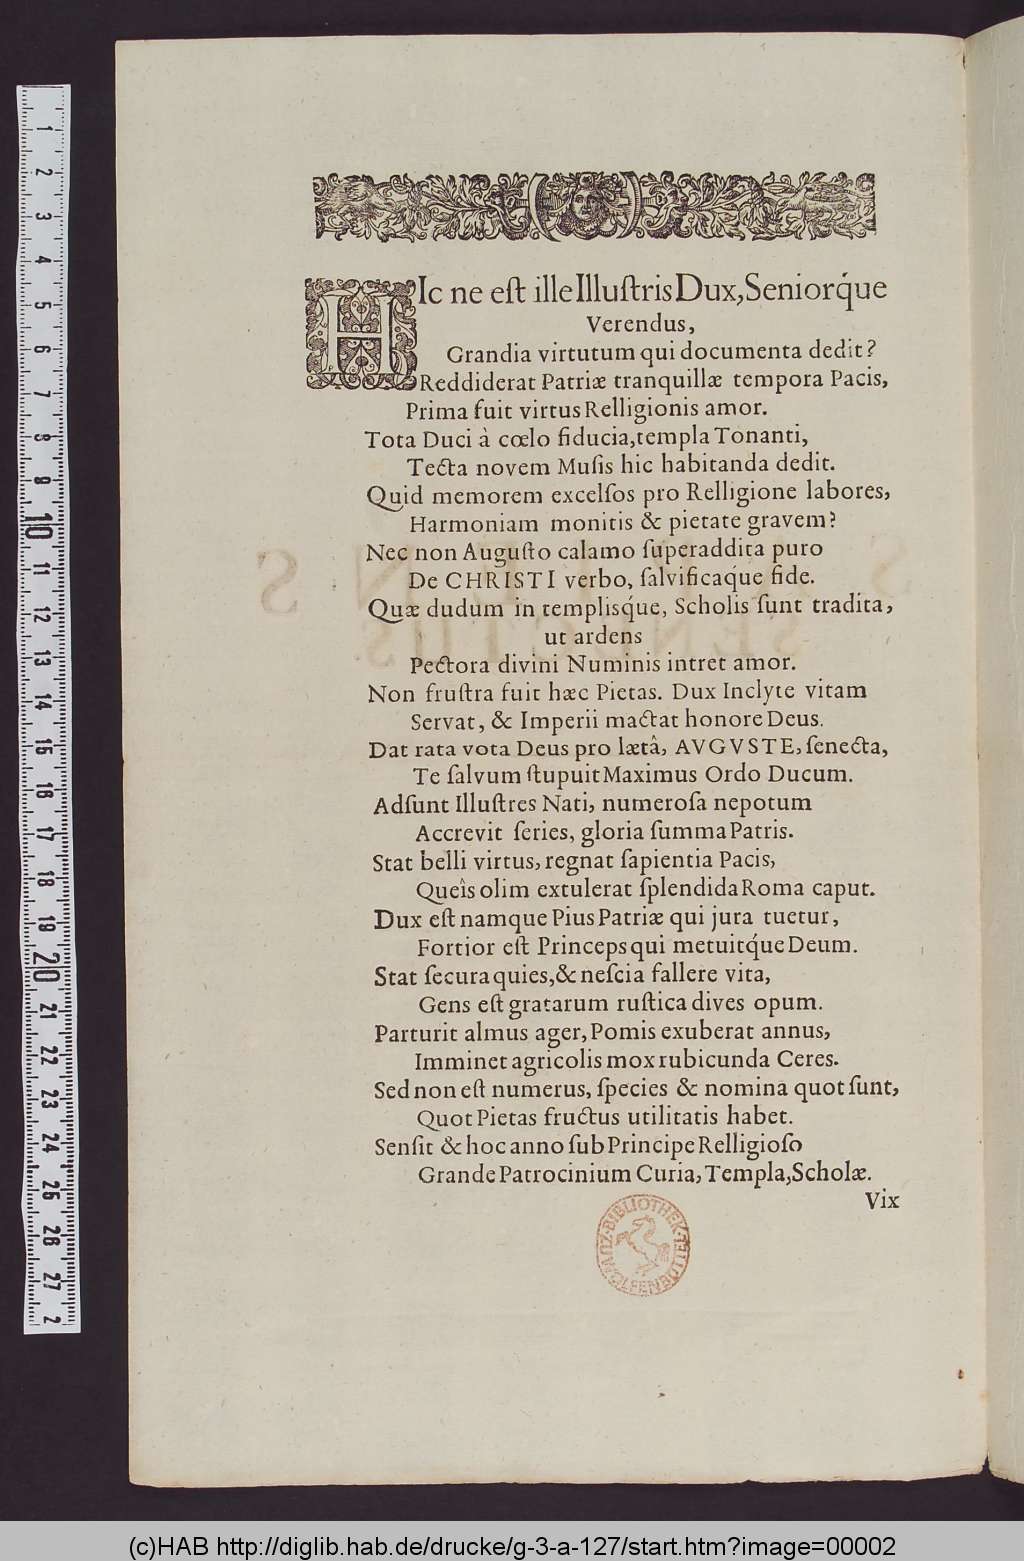 HIc ne eſt ille Illuſtris Dux, Seniorq́ue
Verendus,
Grandia virtutum qui documenta dedit?
Reddiderat Patriæ tranquillæ tempora Pacis,
Prima fuit virtus Relligionis amor.
Tota Duci à cœlo fiducia, templa Tonanti,
Tecta novem Muſis hic habitanda dedit.
Quid memorem excelſos pro Relligione labores,
Harmoniam monitis & pietate gravem?
Nec non Auguſto calamo ſuperaddita puro
De CHRISTI verbo, ſalvificaq́ue fide.
Quæ dudum in templisq́ue, Scholis ſunt tradita,
ut ardens
Pectora divini Numinis intret amor.
Non fruſtra fuit hæc Pietas. Dux Inclyte vitam
Servat, & Imperii mactat honore Deus.
Dat rata vota Deus pro lætâ, AVGVSTE, ſenecta,
Te ſalvum ſtupuit Maximus Ordo Ducum.
Adſunt Illuſtres Nati, numeroſa nepotum
Accrevit ſeries, gloria ſumma Patris.
Stat belli virtus, regnat ſapientia Pacis,
Queîs olim extulerat ſplendida Roma caput.
Dux eſt namque Pius Patriæ qui jura tuetur,
Fortior eſt Princeps qui metuitq́ue Deum.
Stat ſecura quies, & neſcia fallere vita,
Gens eſt gratarum ruſtica dives opum.
Parturit almus ager, Pomis exuberat annus,
Imminet agricolis mox rubicunda Ceres.
Sed non eſt numerus, ſpecies & nomina quot ſunt,
Quot Pietas fructus utilitatis habet.
Senſit & hoc anno ſub Principe Relligioſo
Grande Patrocinium Curia, Templa, Scholæ.
Vix
BIBLIOTHEK
ZU WOLFENBÜTTEL
1
2
3
4
5
6
7
8
9
10
11
12
13
14
15
16
17
18
19
20
21
22
23
24
25
26
27
2
(c)HAB http://diglib.hab.de/drucke/g-3-a-127/start.htm?image=00002